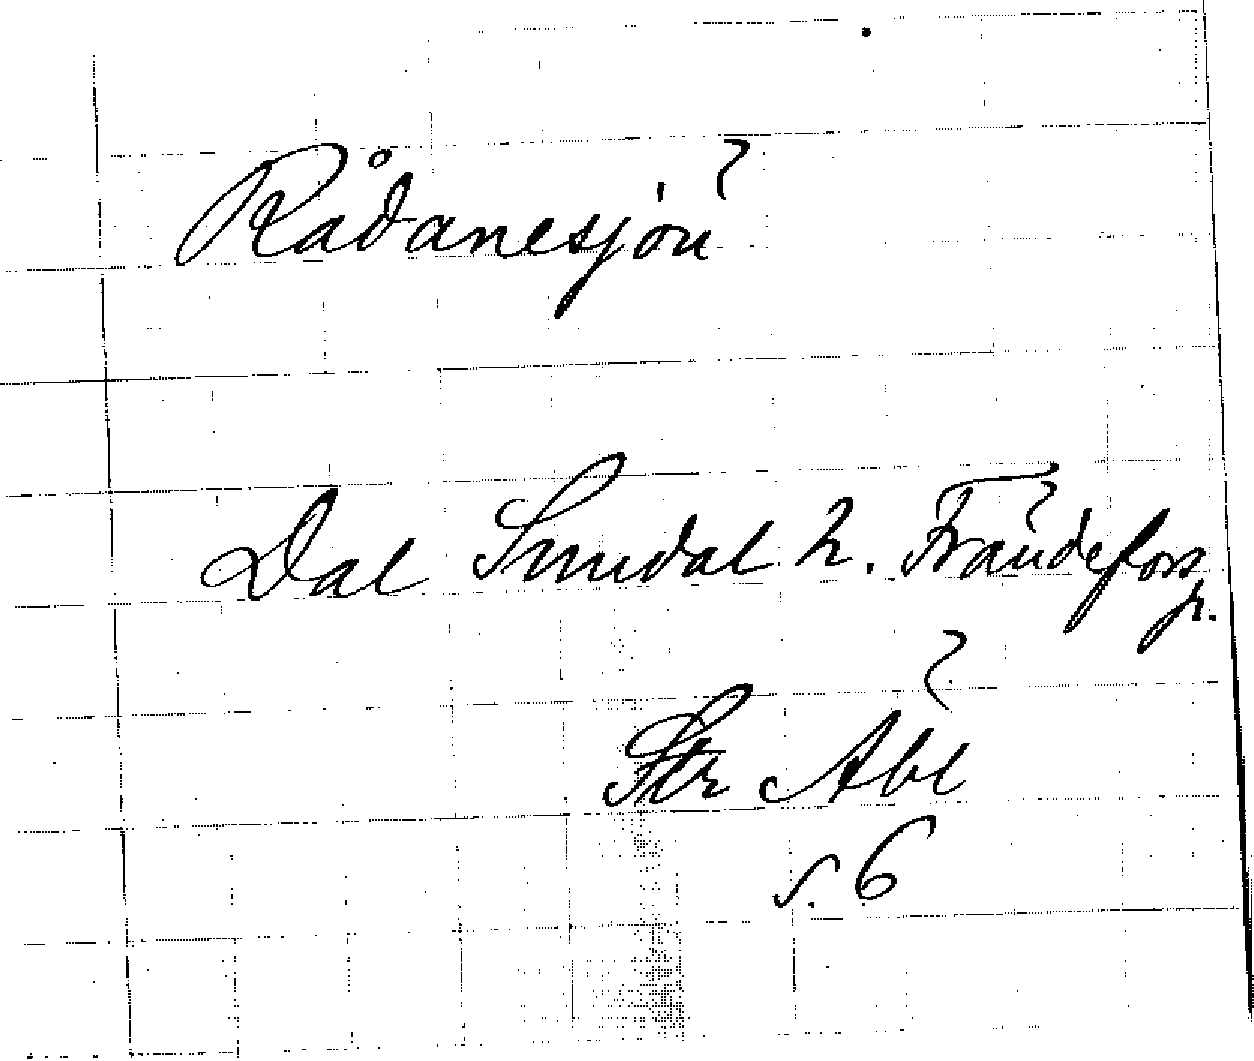 Rådanesjön
Dal Sundal h. Frändefors
p.
Str Äbl
s. 6